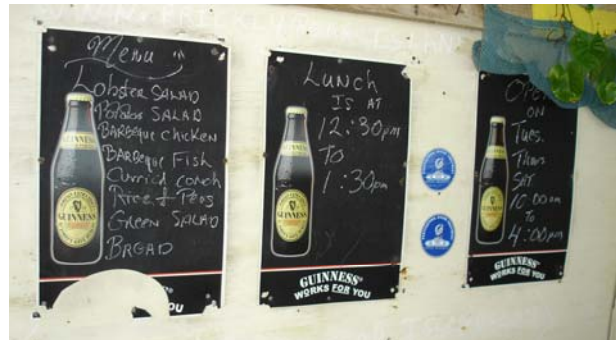 Menu
Lobster SALAD
Potatoe SALAD
BARBEQUE chicken
BARBEQUE Fish
Currid conch
Rice & Peas
GREEN SALAD
BREAD
GUINNESS
Lunch
IS AT
12:30pm
TO
1:30pm
GUINNESS
GUINNESS
WORKS FOR YOU
OPEN
ON
Tues.
Thurs
SAT
10:00am
to
4:00pm
GUINNESS
GUINNESS
WORKS FOR YOU
FOR YOU